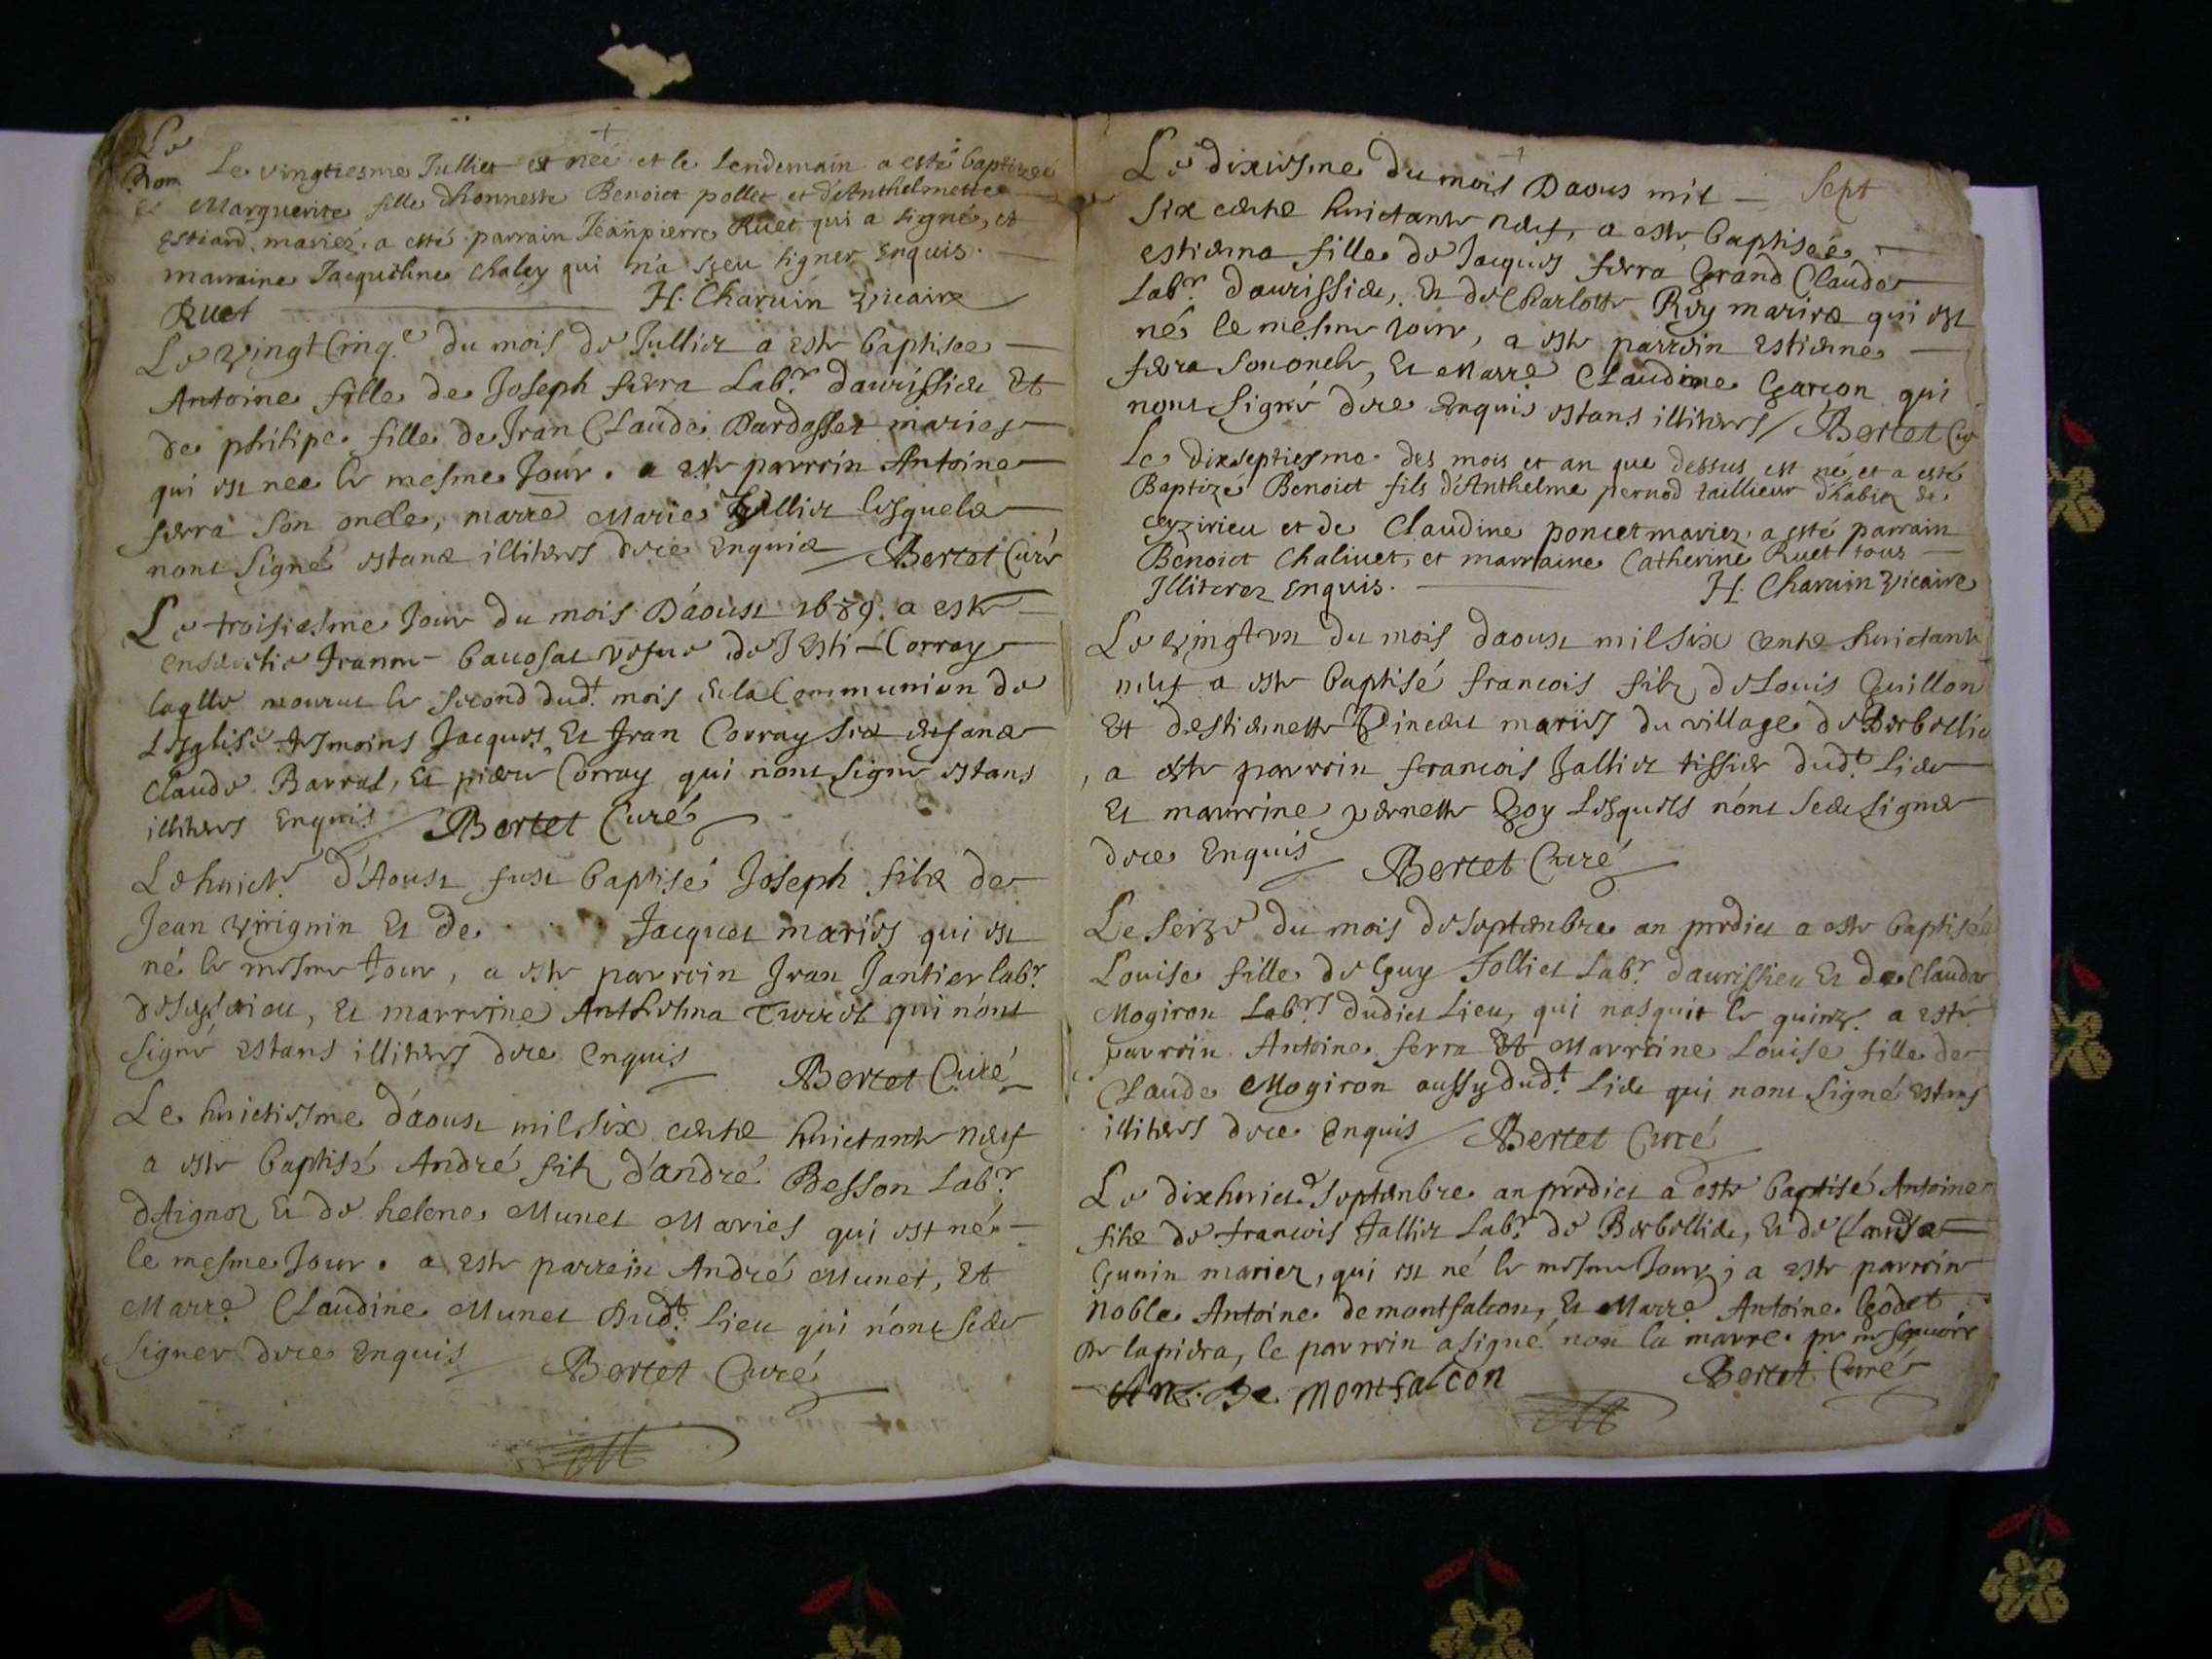 Le
Le vingtiesme Julliet est neé et le lendemain a esté baptizeé
Marguerite fille dhonneste Benoict pollet et d'Anthelmette
Estiard mariez. a esté parrain Jeanpierre Ruet qui a signé, et
marraine Jacqueline Chaley qui n'a sceu signer Enquis.
Ruet H. Charuin vicaire
Le vingt Cinq.e du mois de Julliet a este baptisee
Antoine fille de Joseph ferra Labr. daurissieu Et
de philipe fille de Jean Claude Bardasset mariez
qui est nee le mesme Jour. a este parrein Antoine
ferra son oncle, marre Marie Julliet lesquels
nont signé estans illiteres dece Enquis Bertet Curé
Le troisiesme Jour du mois D'aoust 1689. a este
ensevelie Jeanne vefue de Esti Corray
laqlle mourut le second dud.t mois en la Communion de
Lesglise. tesmoins Jacques, Et Jean Corray ses enfans
Claude Barral, Et pierre Corray qui nont signe estans
illiteres Enquis Bertet Curé
Le huicte d'Aoust fust baptisé Joseph fils de
Jean virignin Et de Jacquet mariés qui est
né le mesme Jour, a este parrein Jean Jantier labr.
de , Et marreine Anthelma qui n'ont
signé Estans illiteres dece Enquis Bertet Curé
Le huictiesme d'aoust mil six cents huictante neuf
a este baptisé André fils d'andré Besson Labr.
dAignoz Et de helene Munet Mariés qui est né
le mesme Jour. a este parrein André Munet, Et
Marre Claudine Munet Dud.t Lieu qui n'ont sceu
signer dece Enquis Bertet Curé
Le dixiesme du mois Daous mil Sept
six cents huictante neuf, a este baptisée
estienna fille de Jacques ferra Grand Claude
Labr. daurissieu, Et de Charlotte Rey mariés qui est
né le mesme Jour, a este parrein Estienne
ferra son oncle, Et Marre Claudine Garcon qui
nont signé dece Enquis estans illiteres Bertet Cur
Le dixseptiesme des mois et an que dessus est né et a esté
Baptizé Benoict fils d'Anthelme pernod taillieur d'habitz de
ceyzirieu et de Claudine poncet mariez. a esté parrain
Benoict Chaliuet, et marraine Catherine Ruet tous
Illiterez Enquis. H. Charuin vicaire
Le vingt un du mois daoust mil six cents huictante
neuf a este baptisé francois filz de Louis Guillon
Et destiennette mariés du village de Berbollie
, a este parrein francois Jalliet tissier dud.t Lieu
Et marreine pernette Roy Lesquels n'ont sceu signer
dece Enquis Bertet Curé
Le seize du mois de septembre an predict a este baptisée
Louise fille de Guy Jolliet Labr. daurissieu Et de Clauda
Mogiron Labrs dudict Lieu, qui nasquit le quinze. a esté
parrein Antoine ferra Et Marreine Louise fille de
Claude Mogiron aussy dud.t Lieu qui nont signé estans
illiteres dece Enquis Bertet Curé
Le dixhuict.e septembre an predict a este baptisé Antoine
fils de francois Jalliet Labr. de Berbollieu, Et de Clauda
Gunin mariez, qui est né le mesme Jour; a este parrein
Noble Antoine de montfalcon, Et Marre Antoine Godet
de lapiera, le parrein a signé non la marre. pr ne scavoir
Ant. De Montfalcon Bertet Curé